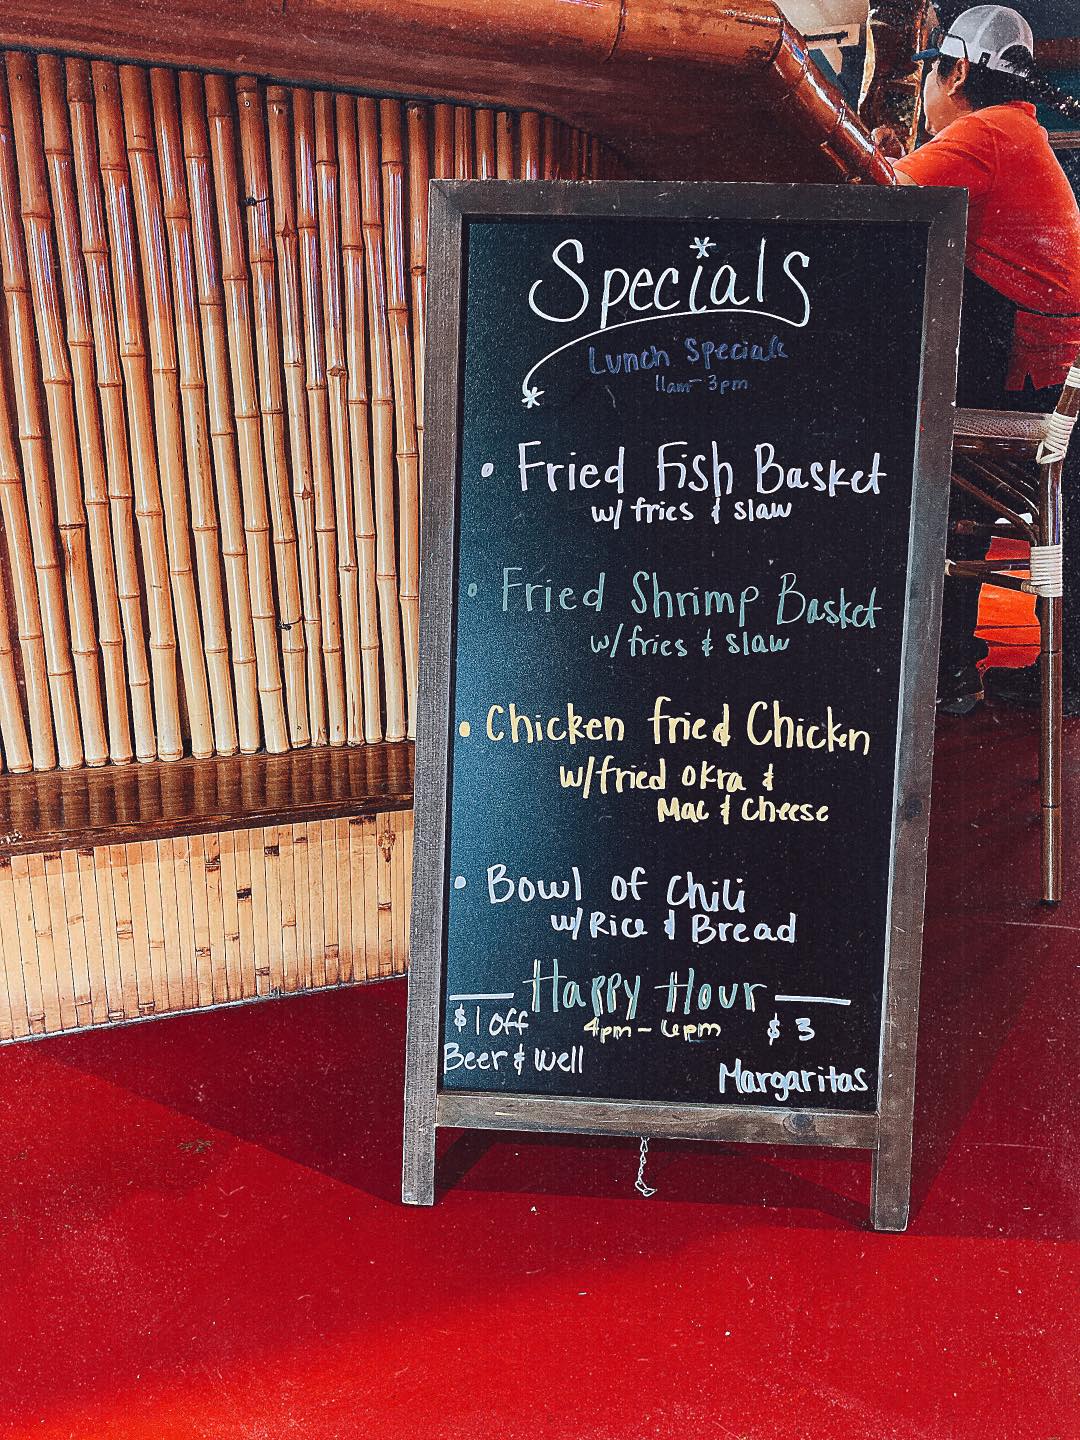 Specials
Lunch Specials
11am-3pm
• Fried Fish Basket
w/ fries & slaw
• Fried Shrimp Basket
w/ fries & slaw
• Chicken fried Chicken
w/ fried okra &
Mac & Cheese
• Bowl of Chili
w/ Rice & Bread
Happy Hour
4pm - 6pm
$1 off
Beer & Well
$3
Margaritas